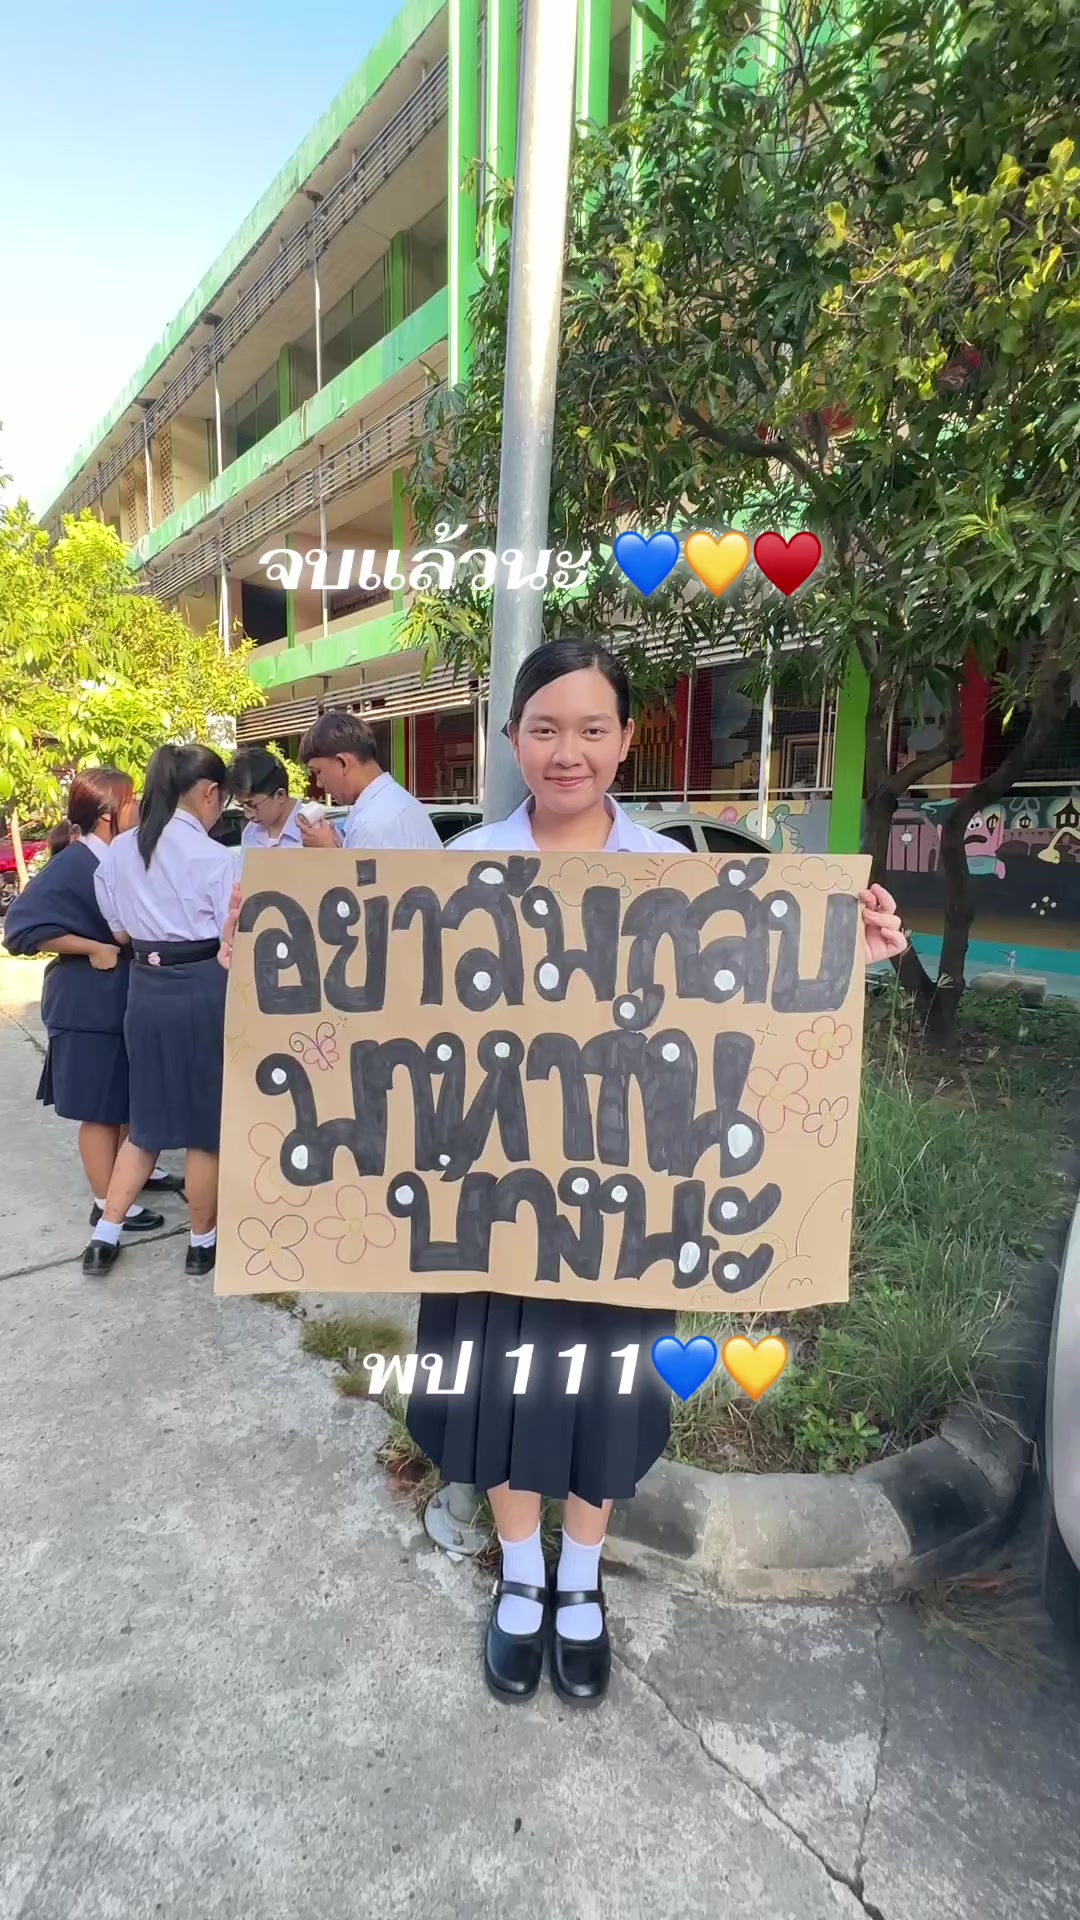 จบแล้วนะ 💙💛♥️
อย่าลืมกลับ
มาหากัน
บางนะ
พป 111💙💛